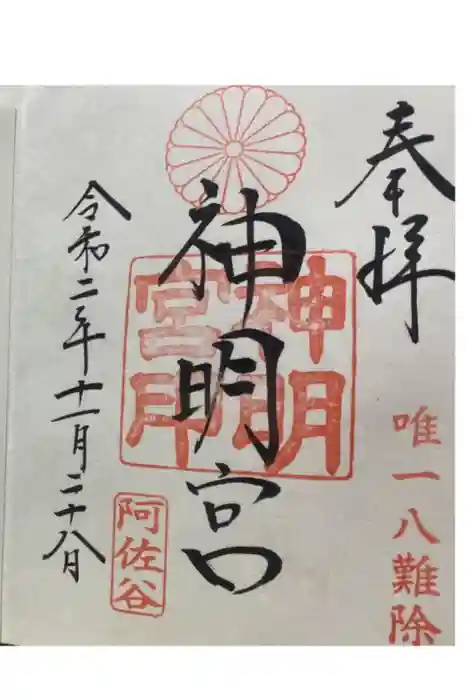 奉拝
唯一八難除
神明宮
神明宮印
阿佐谷
令和二年十一月二十八日